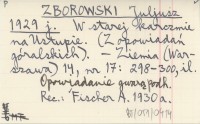 ZBOROWSKI Juljusz
1929 g. W starej karczmie
na Ustupie. (Z opowiadań
góralskich). - Ziemia (War-
szawa) 14, nr 17: 298-300, il.
Opowiadanie gwarą podh.
Rec.: Fischer A. 1930 a.